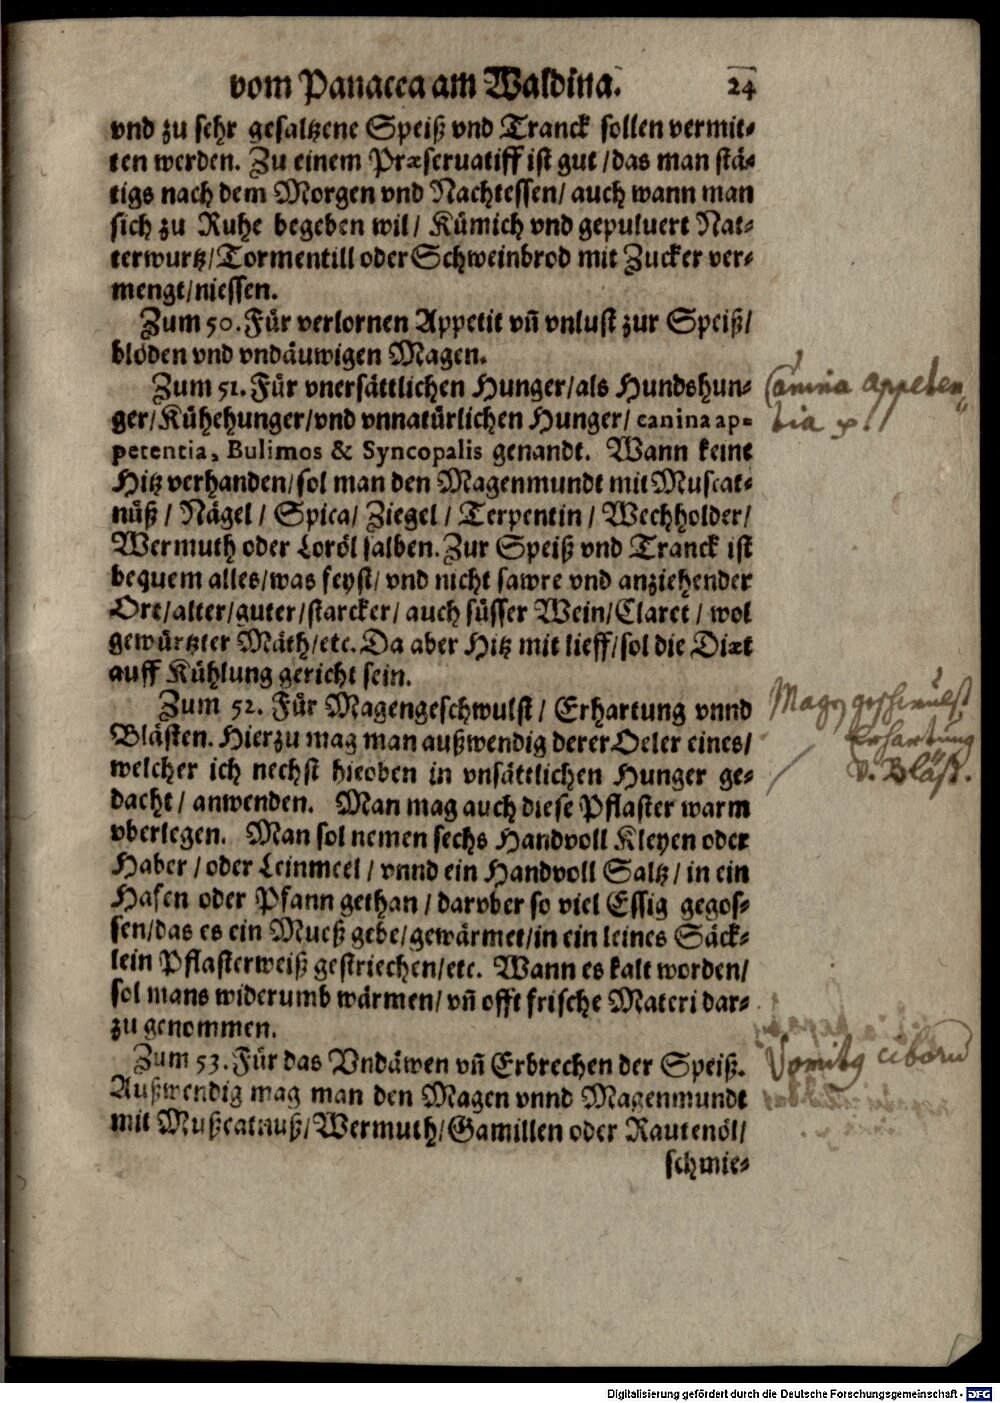 vom Panacea am Waldina. 24
vnd zu sehr gesaltzene Speiß vnd Tranck sollen vermit-
ten werden. Zu einem Præseruatiff ist gut / das man stä-
tigs nach dem Morgen vnd Nachtessen / auch wann man
sich zu Ruhe begeben wil / Kümich vnd gepuluert Nat-
terwurtz / Tormentill oder Schweinbrod mit Zucker ver-
mengt / niessen.
Zum 50. Für verlornen Appetit vn̄ vnlust zur Speiß /
blöden vnd vndäuwigen Magen.
Zum 51. Für vnersättlichen Hunger / als Hundshun-
ger / Kühehunger / vnd vnnatürlichen Hunger / canina ap-
petentia, Bulimos & Syncopalis genandt. Wann keine
Hitz verhanden / sol man den Magenmundt mit Muscat-
nüß / Nägel / Spica / Ziegel / Terpentin / Wechholder /
Wermuth oder Loröl salben. Zur Speiß vnd Tranck ist
bequem alles / was feyst / vnd nicht sawre vnd anziehender
Ort / alter / guter / starcker / auch süsser Wein / Claret / wol
gewürtzter Mäth / etc. Da aber Hitz mit lieff / sol die Diæt
auff Kühlung gericht sein.
Zum 52. Für Magengeschwulst / Erhartung vnnd
Blästen. Hierzu mag man außwendig derer Oeler eines /
welcher ich nechst hieoben in vnsättlichen Hunger ge-
dacht / anwenden. Man mag auch diese Pflaster warm
vberlegen. Man sol nemen sechs Handvoll Kleyen oder
Haber / oder Leinmeel / vnnd ein Handvoll Saltz / in ein
Hafen oder Pfann gethan / darvber so viel Essig gegos-
sen / das es ein Mueß gebe / gewärmet / in ein leines Säck-
lein Pflasterweiß gestriechen / etc. Wann es kalt worden /
sol mans widerumb wärmen / vn̄ offt frische Materi dar-
zu genommen.
Zum 53. Für das Vndäwen vn̄ Erbrechen der Speiß.
Außwendig mag man den Magen vnnd Magenmundt
mit Mußcatnuß / Wermuth / Gamillen oder Rautenöl /
schmie-
Canina Appeten
tia
Magen geschwulst
Erhartung
v. Bläst.
Vomitus ciborū
Digitalisierung gefördert durch die Deutsche Forschungsgemeinschaft - DFG